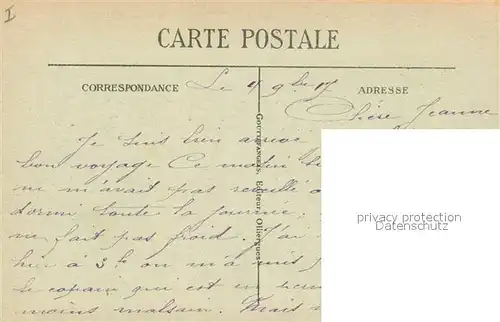 I
CARTE POSTALE
CORRESPONDANCE
ADRESSE
Le 4 9bre 17
Chère Jeanne
Je suis bien arrivé
bon voyage Ce matin
ne m'avait pas réveillé
dormi toute la journée,
ne fait pas froid. J'ai
hier à 3h on m'a mis
le copain qui est un
moins malsain. Mais
GOUTTEFANGEAS, Editeur, Olliergues
privacy protection
copyright protected